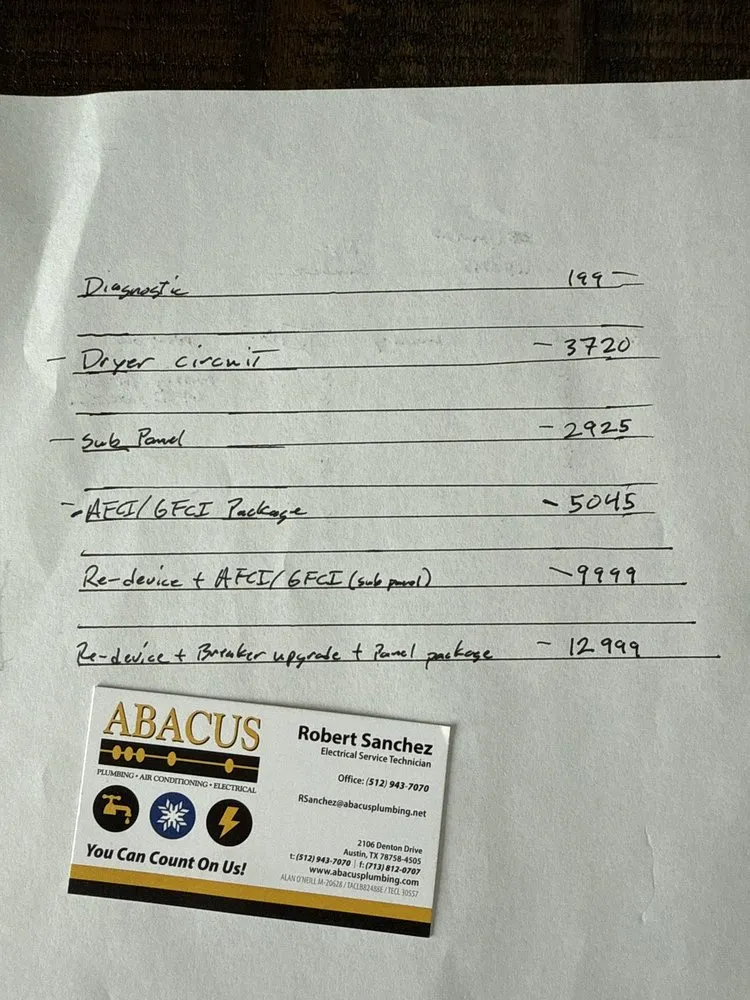 Diagnostic 199 —
— Dryer circuit — 3720
— Sub Panel — 2925
- AFCI/GFCI Package - 5045
Re-device + AFCI/GFCI (sub panel) — 9999
Re-device + Breaker upgrade + Panel package — 12 999
ABACUS
PLUMBING • AIR CONDITIONING • ELECTRICAL
You Can Count On Us!
Robert Sanchez
Electrical Service Technician
Office: (512) 943-7070
RSanchez@abacusplumbing.net
2106 Denton Drive
Austin, TX 78758-4505
t: (512) 943-7070 | f: (713) 812-0707
www.abacusplumbing.com
ALAN O'NEILL M-20628 / TACLB82488E / TECL 30557